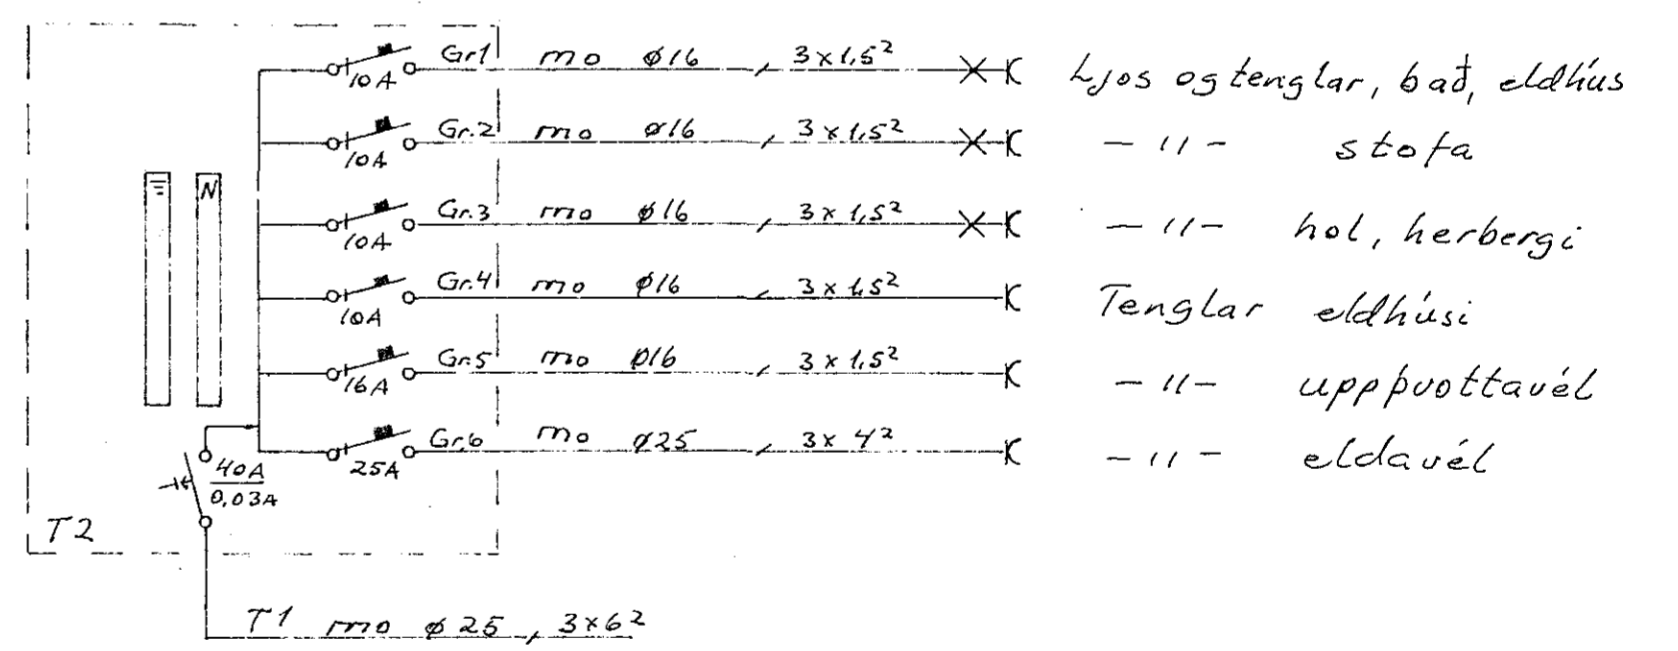 Gr1 mo ø16, 3x1,5² Ljos og tenglar, bað, eldhús
10A
Gr.2 mo ø16, 3x1,5² — 〃 — stofa
10A
N
Gr.3 mo ø16, 3x1,5² — 〃 — hol, herbergi
10A
Gr.4 mo ø16, 3x1,5² Tenglar eldhúsi
10A
Gr.5 mo ø16, 3x1,5² — 〃 — uppþvottavél
16A
Gr.6 mo ø25, 3x4² — 〃 — eldavél
25A
40A
0,03A
T2
T1 mo ø25, 3x6²